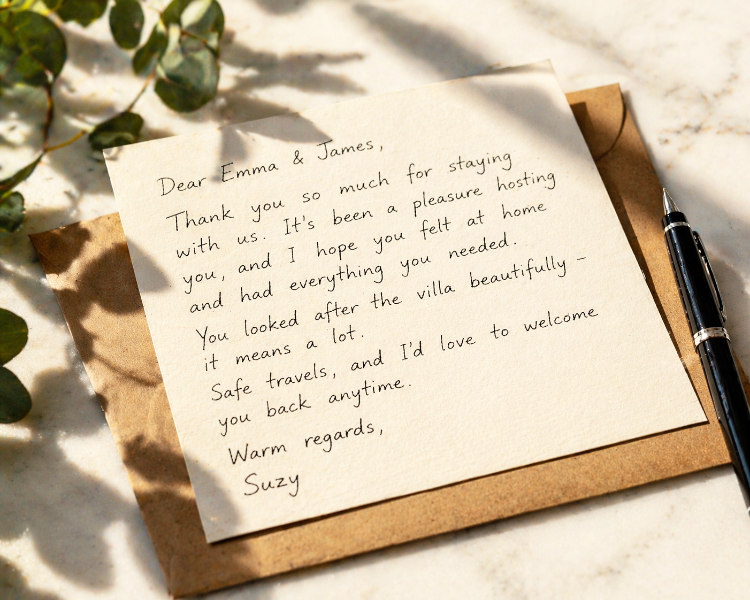 Dear Emma & James,
Thank you so much for staying
with us. It's been a pleasure hosting
you, and I hope you felt at home
and had everything you needed.
You looked after the villa beautifully –
it means a lot.
Safe travels, and I'd love to welcome
you back anytime.
Warm regards,
Suzy